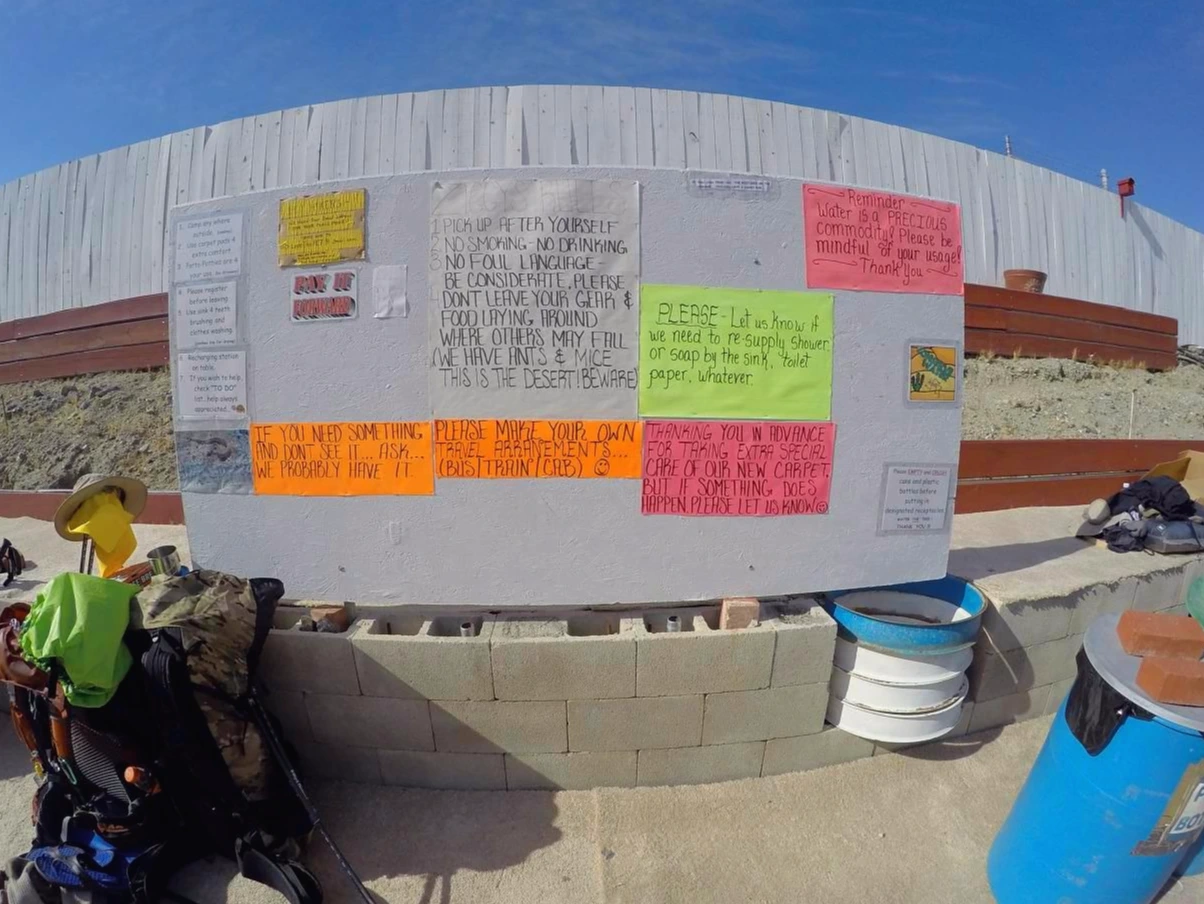 1. Camp any where
outside.
2. Use carpet pads 4
extra comfort.
3. Porty-Potties are 4
your use.
4. Please register
before leaving
5. Use sink 4 teeth
brushing and
clothes washing.
6. Recharging station
on table.
7. If you wish to help,
check "TO DO"
list..help always
appreciated.
PAY IT
FORWARD
1 PICK UP AFTER YOURSELF
2 NO SMOKING-NO DRINKING
3 NO FOUL LANGUAGE-
BE CONSIDERATE, PLEASE
DONT LEAVE YOUR GEAR &
FOOD LAYING AROUND
WHERE OTHERS MAY FALL
(WE HAVE ANTS & MICE
THIS IS THE DESERT!BEWARE)
Reminder
Water is a PRECIOUS
commodity! Please be
mindful of your usage!
Thank you
PLEASE - Let us know if
we need to re-supply shower
or soap by the sink, toilet
paper, whatever.
IF YOU NEED SOMETHING
AND DON'T SEE IT... ASK...
WE PROBABLY HAVE IT.
PLEASE MAKE YOUR OWN
TRAVEL ARRANGEMENTS...
(BUS/TRAIN/CAB)
THANKING YOU IN ADVANCE
FOR TAKING EXTRA SPECIAL
CARE OF OUR NEW CARPET.
BUT IF SOMETHING DOES
HAPPEN, PLEASE LET US KNOW
Please EMPTY and CRUSH
cans and plastic
bottles before
putting in
designated receptacles